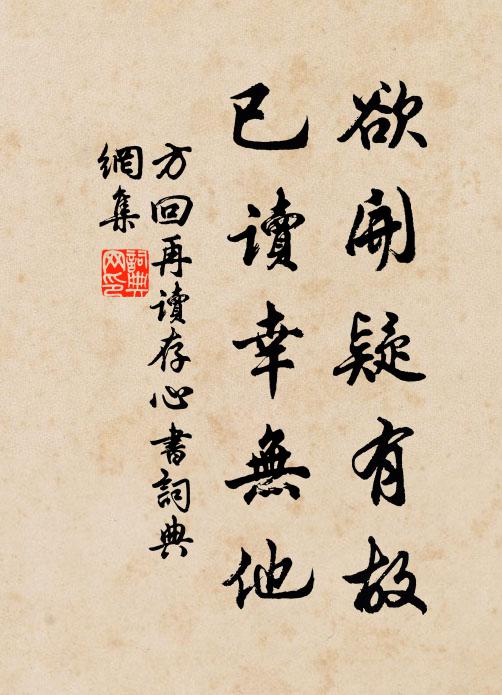 欲開疑有故
已讀幸無他
方回再讀存心書詞典
網集
詞典網印